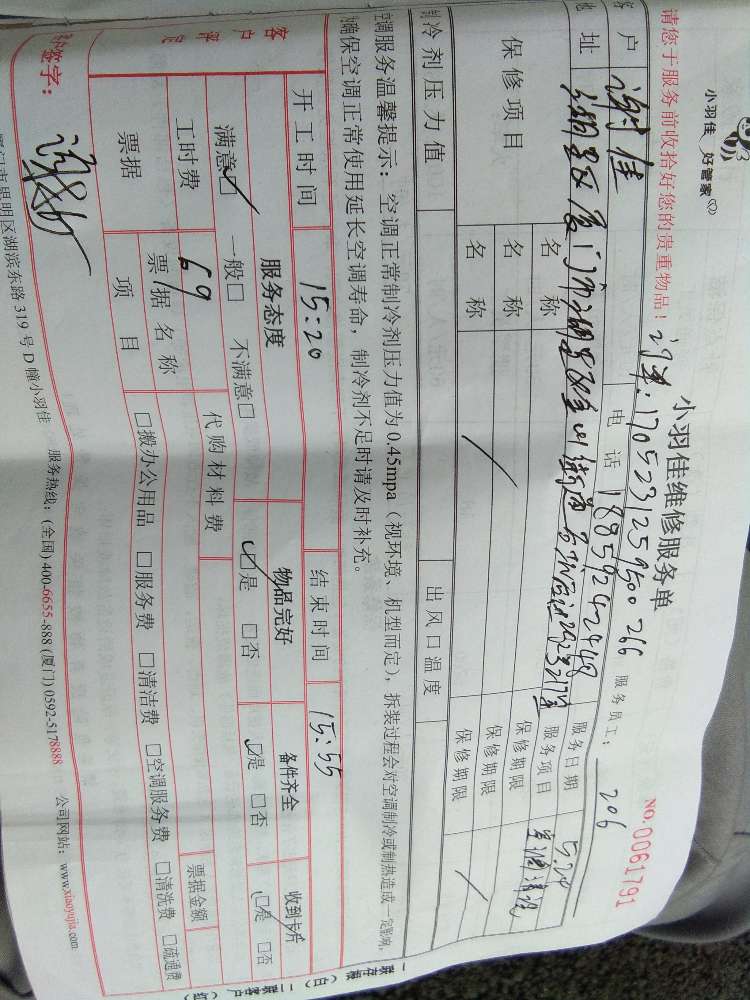 小羽佳 好管家
小羽佳维修服务单
NO. 0061791
请您于服务前收拾好您的贵重物品！ 订单：170523125950026б 服务员工： 206
客户 谢佳 电话 18859242448 服务日期 5.24
地址 服务项目 空调清洗
保修项目 名称 保修期限
名称 / 保修期限
名称 保修期限 /
制冷剂压力值 出风口温度
空调服务温馨提示： 空调正常制冷剂压力值为0.45mpa（视环境、机型而定），拆装过程会对空调制冷或制热造成一定影响，
确保空调正常使用延长空调寿命，制冷剂不足时请及时补充。
开工时间 15:20 结束时间 15:55
服务态度 物品完好 备件齐全 收到卡片
满意☑ 一般□ 不满意□ ☑是 □否 ☑是 □否 ☑是 □否
工时费 69 代购材料费
票据 票据名称 票据金额
项目 □搬办公用品 □服务费 □清洁费 □空调服务费 □清洗费 □疏通费
签字：
厦门市思明区湖滨东路319号D幢小羽佳 服务热线：(全国) 400-6655-888 (厦门) 0592-5178888 公司网站：www.xiaoyujia.com
一联存根（白） 二联客户（红）